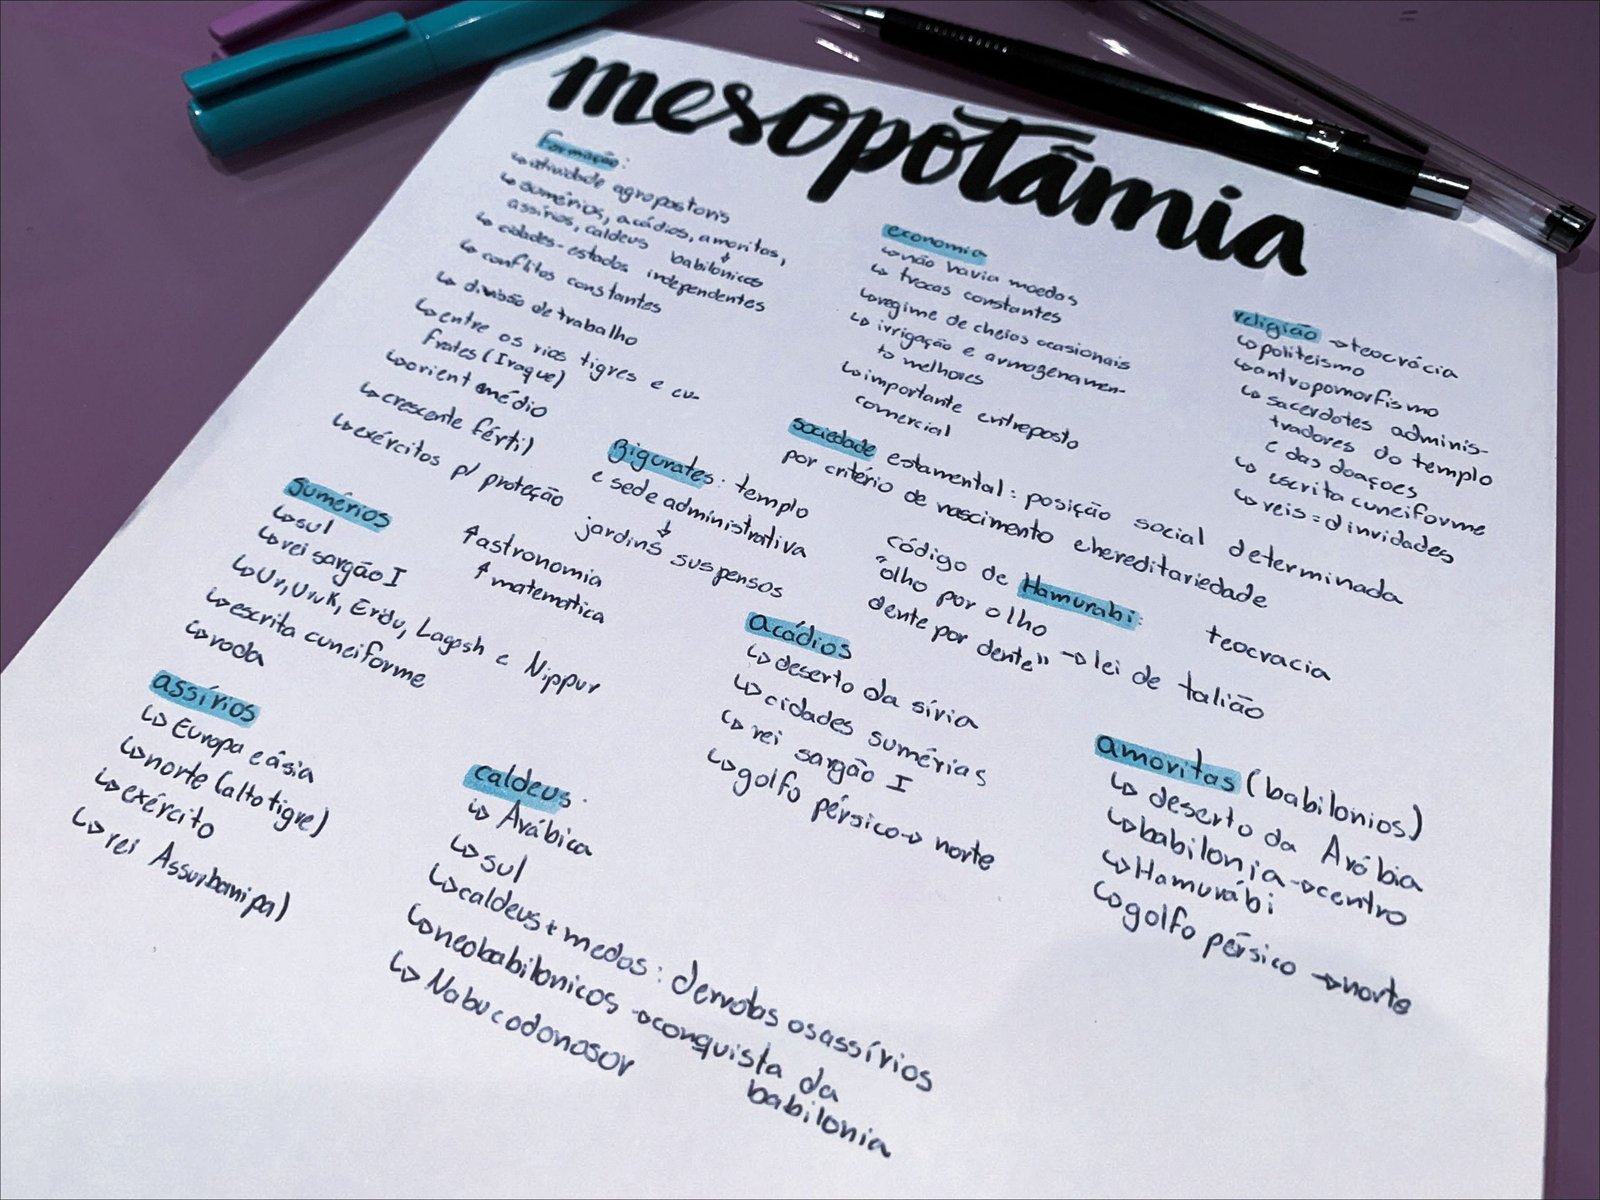 mesopotâmia
formação:
↳ atividade agropastoris
↳ sumérios, acádios, amoritas,
assírios, caldeus ↓
babilônicos
↳ cidades-estados independentes
↳ conflitos constantes
↳ divisão de trabalho
↳ entre os rios tigres e eu-
frates (Iraque)
↳ orient médio
↳ crescente fértil
↳ exércitos p/ proteção
economia
↳ não havia moedas
↳ trocas constantes
↳ regime de cheias ocasionais
↳ irrigação e armazenamen-
to melhores
↳ importante entreposto
comercial
religião → teocrácia
↳ politeísmo
↳ antropomorfismo
↳ sacerdotes adminis-
tradores do templo
e das doaçoes
↳ escrita cuneiforme
↳ reis = dinvidades
Zigurates: templo
e sede administrativa
↓
jardins suspensos
sociedade estamental: posição social determinada
por critério de nascimento e hereditariedade
código de Hamurabi:
"olho por olho
dente por dente" → lei de talião
teocracia
sumérios
↳ sul
↳ rei sargão I
↳ Ur, Uruk, Eridu, Lagash e Nippur
↳ escrita cuneiforme
↳ roda
↑ astronomia
↑ matematica
acádios
↳ deserto da síria
↳ cidades sumérias
↳ rei sargão I
↳ golfo pérsico → norte
assírios
↳ Europa e ásia
↳ norte (alto tigre)
↳ exército
↳ rei Assurbanipal
caldeus:
↳ Arábica
↳ sul
↳ caldeus + medos: derrotas os assírios
↳ neobabilonicos → conquista da
babilonia
↳ Nabucodonosor
amoritas (babilonios)
↳ deserto da Arábia
↳ babilonia → centro
↳ Hamurábi
↳ golfo pérsico → norte